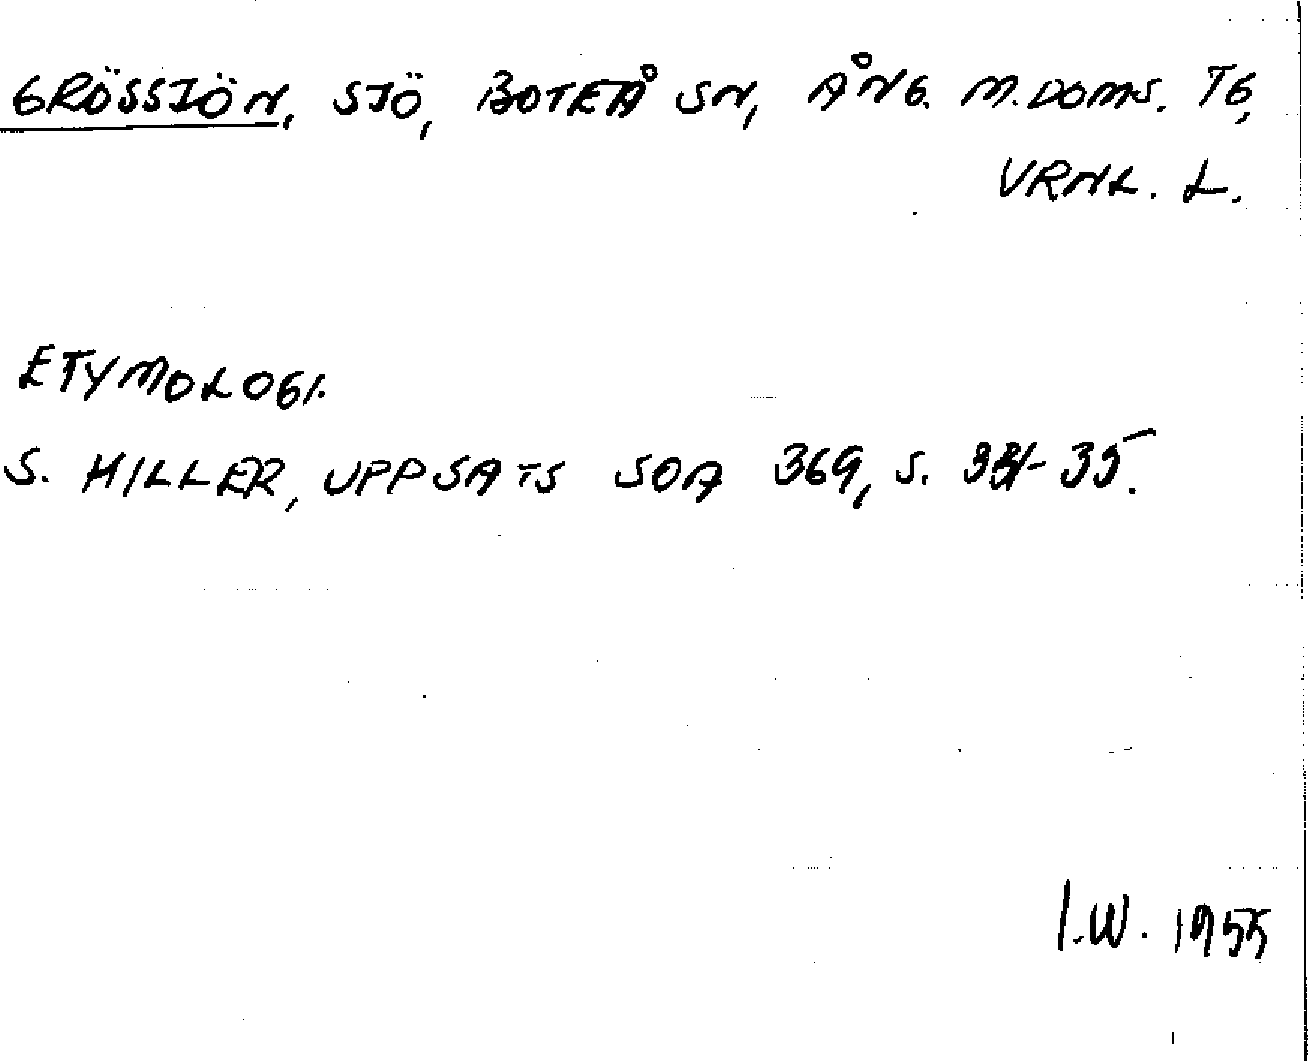 GRÖSSJÖN, SJÖ, BOTEÅ SN, ÅNG. M. DOMS. TG,
VRNL. L.
ETYMOLOGI.
S. HILLER, UPPSATS SOA 369, S. 34-35.
I.W. 1955